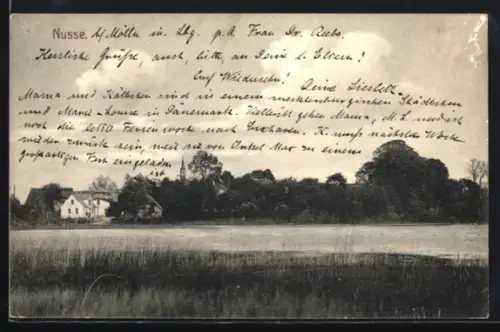 Nusse. b/Mölln in. Lbg. p. A Frau Dr.
Herzliche Grüsse, auch, bitte, an Deine l. Eltern!
Auf Wiedersehn! Deine Liesbeth.
Mama und Käthchen sind in einem mecklenburgischen Städtchen
und Marie-Louise in Dänemark. Vielleicht gehen Mama, M. L. und ich
noch die letzte Ferienwoche nach Cuxhaven. K. muss nächste Woche
wieder zurück sein, weil sie von Onkel Max zu einem
großartigen Fest eingeladen
ist